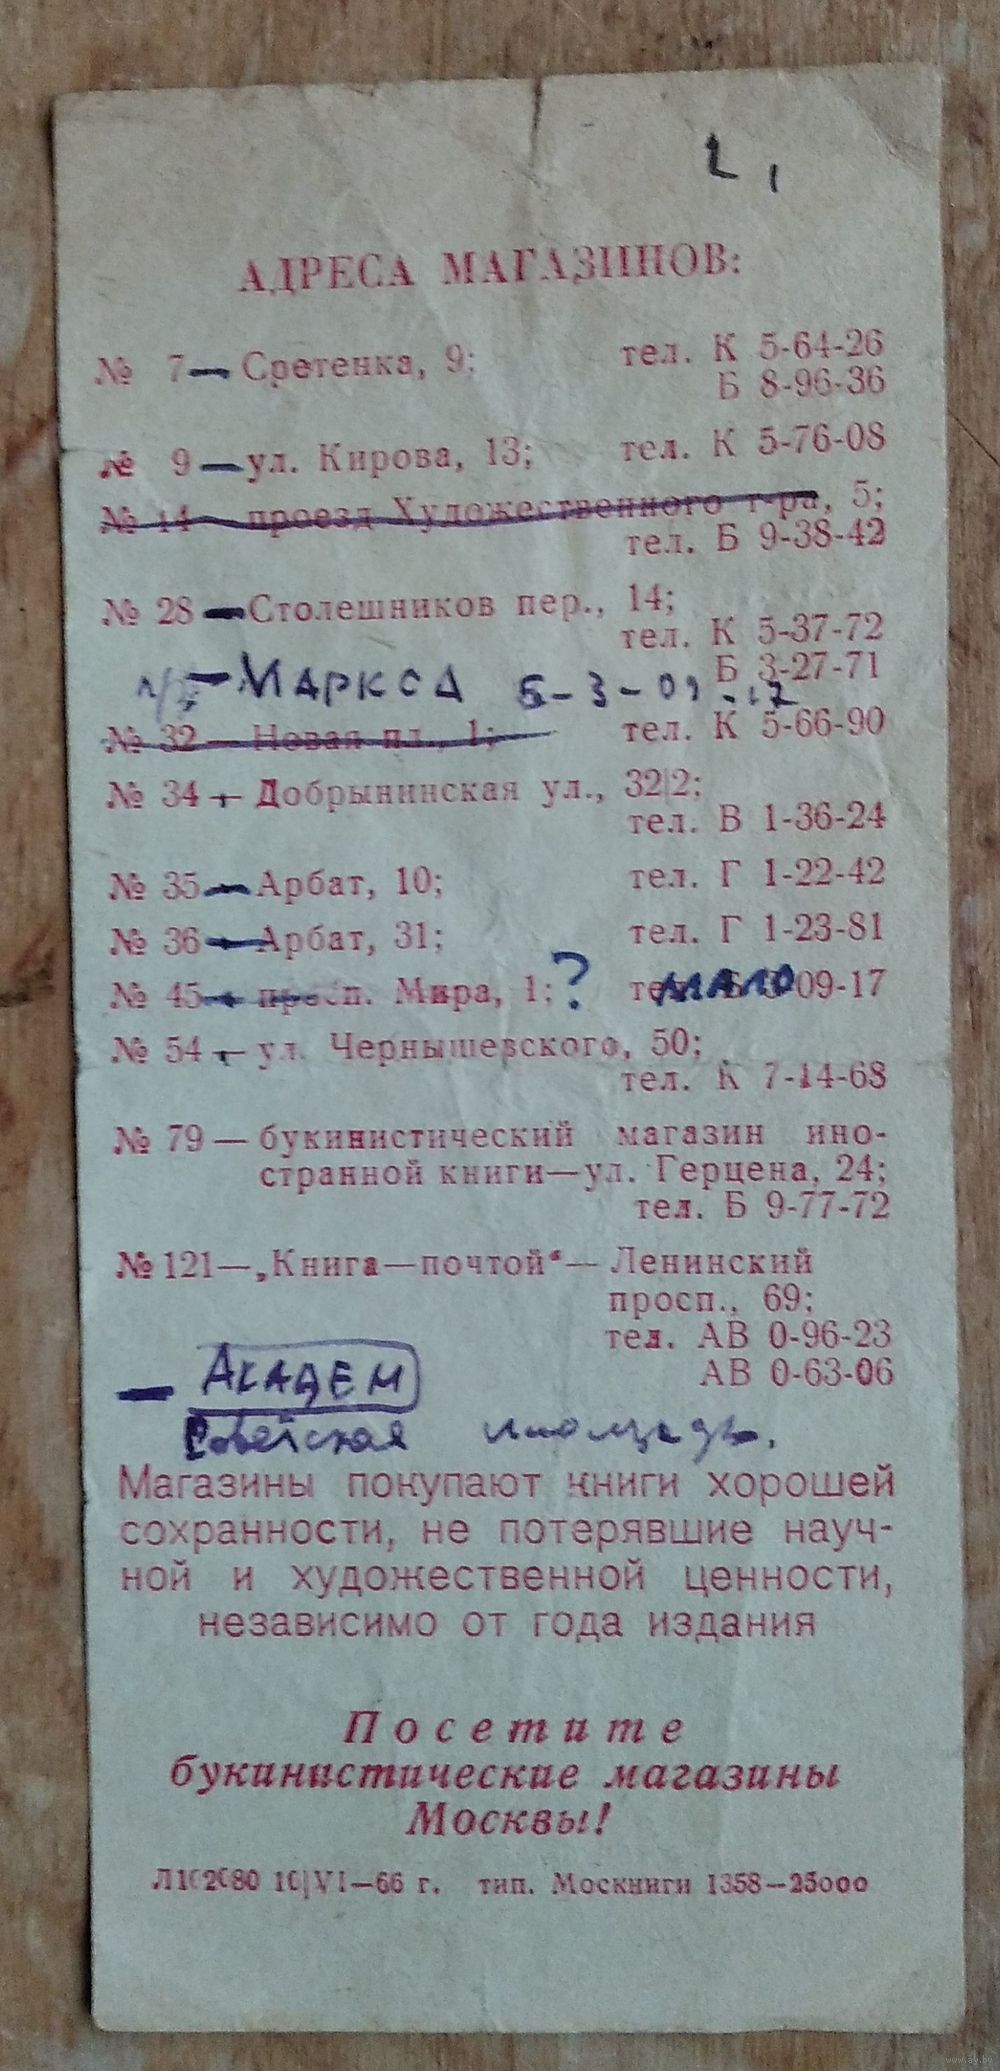 АДРЕСА МАГАЗИНОВ:
№ 7 — Сретенка, 9; тел. К 5-64-26
Б 8-96-36
№ 9 — ул. Кирова, 13; тел. К 5-76-08
№ 14 — проезд Художественного т-ра, 5;
тел. Б 9-38-42
№ 28 — Столешников пер., 14;
тел. К 5-37-72
Б 3-27-71
— МАРКСА
№ 32 — Новая пл., 1; тел. К 5-66-90
№ 34 — Добрынинская ул., 32|2;
тел. В 1-36-24
№ 35 — Арбат, 10; тел. Г 1-22-42
№ 36 — Арбат, 31; тел. Г 1-23-81
№ 45 — просп. Мира, 1; ? мало 09-17
№ 54 — ул. Чернышевского, 50;
тел. К 7-14-68
№ 79 — букинистический магазин ино-
странной книги—ул. Герцена, 24;
тел. Б 9-77-72
№ 121—„Книга—почтой“— Ленинский
просп., 69;
тел. АВ 0-96-23
АВ 0-63-06
— АКАДЕМ
Советская площадь.
Магазины покупают книги хорошей
сохранности, не потерявшие науч-
ной и художественной ценности,
независимо от года издания
Посетите
букинистические магазины
Москвы!
Л102080 10|VI—66 г. тип. Москниги 1358—25000
www.ay.by